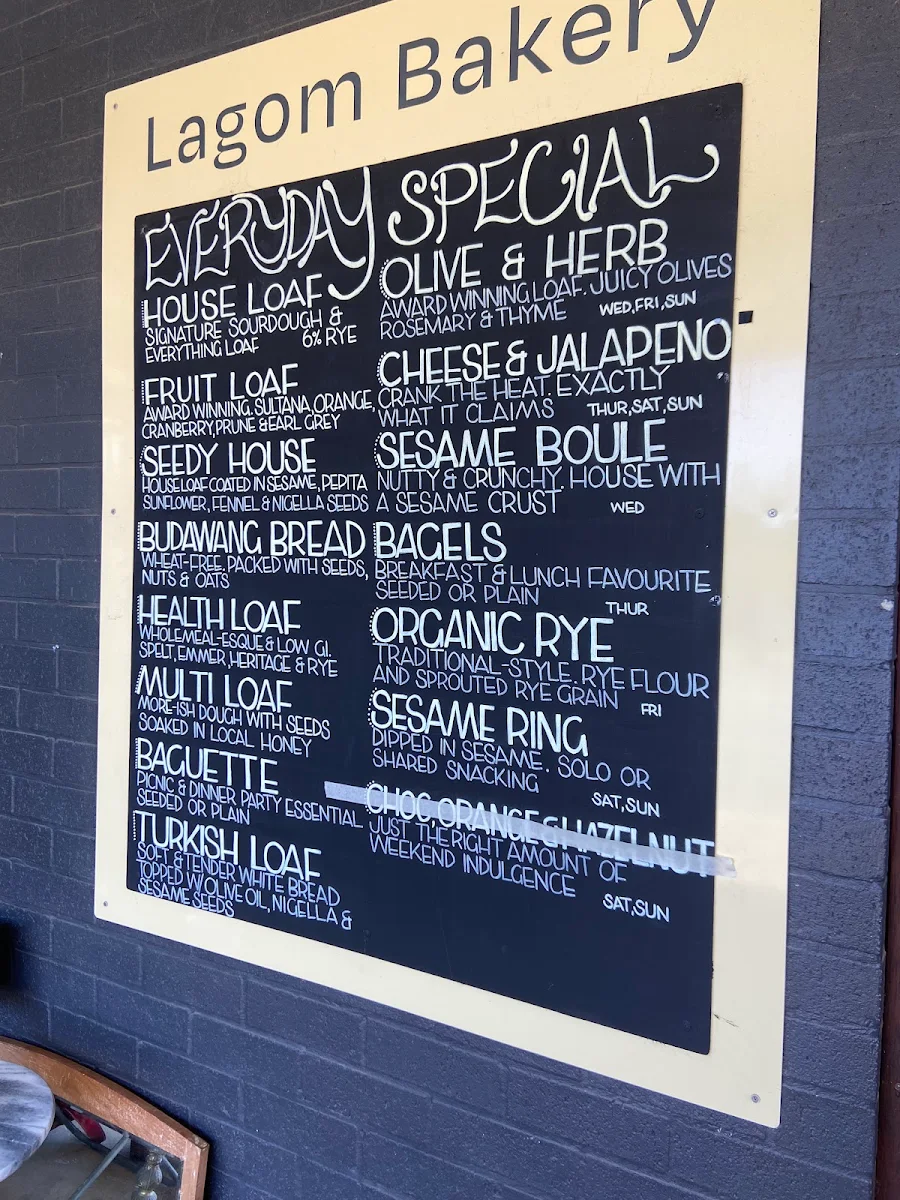 Lagom Bakery
EVERYDAY
HOUSE LOAF
SIGNATURE SOURDOUGH &
EVERYTHING LOAF 6% RYE
FRUIT LOAF
AWARD WINNING. SULTANA, ORANGE,
CRANBERRY, PRUNE & EARL GREY
SEEDY HOUSE
HOUSE LOAF COATED IN SESAME, PEPITA
SUNFLOWER, FENNEL & NIGELLA SEEDS
BUDAWANG BREAD
WHEAT-FREE. PACKED WITH SEEDS,
NUTS & OATS
HEALTH LOAF
WHOLEMEAL-ESQUE & LOW GI.
SPELT, EMMER, HERITAGE & RYE
MULTI LOAF
MORE-ISH DOUGH WITH SEEDS
SOAKED IN LOCAL HONEY
BAGUETTE
PICNIC & DINNER PARTY ESSENTIAL
SEEDED OR PLAIN
TURKISH LOAF
SOFT & TENDER WHITE BREAD
TOPPED W/ OLIVE OIL, NIGELLA &
SESAME SEEDS
SPECIAL
OLIVE & HERB
AWARD WINNING LOAF. JUICY OLIVES
ROSEMARY & THYME WED, FRI, SUN
CHEESE & JALAPENO
CRANK THE HEAT. EXACTLY
WHAT IT CLAIMS THUR, SAT, SUN
SESAME BOULE
NUTTY & CRUNCHY. HOUSE WITH
A SESAME CRUST WED
BAGELS
BREAKFAST & LUNCH FAVOURITE
SEEDED OR PLAIN THUR
ORGANIC RYE
TRADITIONAL-STYLE. RYE FLOUR
AND SPROUTED RYE GRAIN FRI
SESAME RING
DIPPED IN SESAME. SOLO OR
SHARED SNACKING SAT, SUN
CHOC, ORANGE & HAZELNUT
JUST THE RIGHT AMOUNT OF
WEEKEND INDULGENCE SAT, SUN